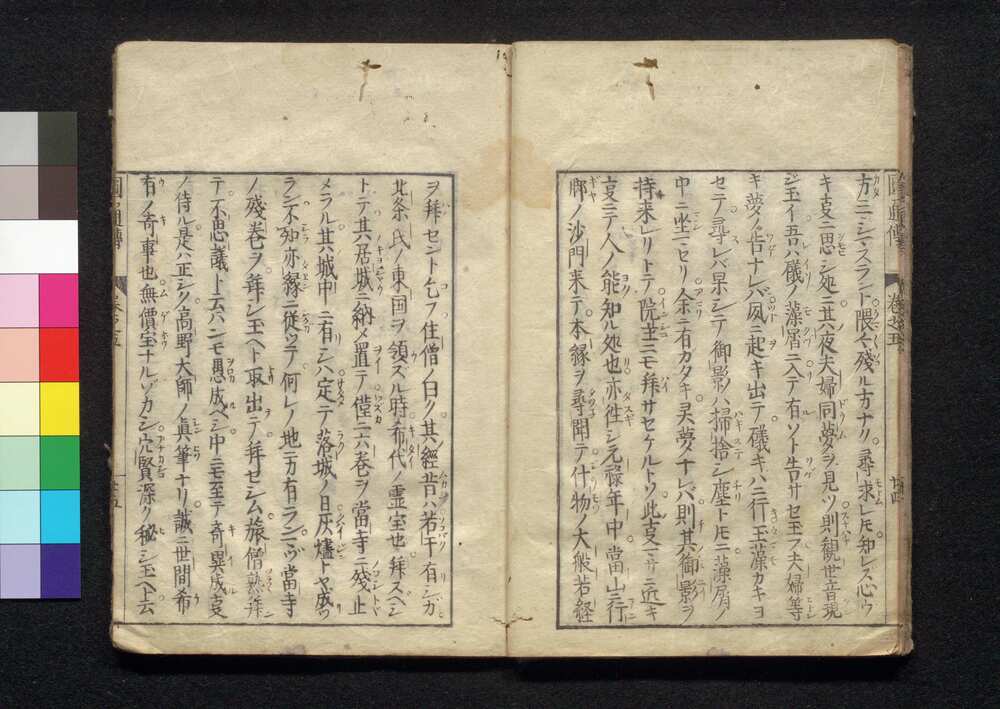 方ニシスラント隈々残ル方ナク尋求レモ知レス心ウ
キ夏ニ思シ処ニ其夜夫婦同夢ヲ見ツ則観世音現
シ玉イ吾ハ礒ノ藻屑ニ入テ有ソト告サセ玉フ夫婦等
キ夢ノ告ナレバ夙ニ起キ出テ礒キハニ行玉藻カキヨ
セテ尋レバ果シテ御影ハ掃捨シ塵トモニ藻屑ノ
中ニ坐ニセリ余ニ有カタキ灵夢ナレバ則其御影ヲ
持来レリトテ院主ニモ拜サセケルトソ此夏マサニ近キ
夏ニテ人ノ能知ル処也亦徃シ元禄年中當山ニ行
脚ノ沙門来テ本縁ヲ尋聞テ什物ノ大般若経
ヲ拜セント乞フ住僧ノ曰ク其經昔ハ若干有シガ
北条氏ノ東国ヲ領ズル時希代ノ霊宝也拜ズベシ
トテ其居城ニ納メ置テ僅ニ六巻ヲ當寺ニ残止
メラル其城中ニ有シハ定テ落城ノ日灰燼トヤ成ツ
ラン不知亦縁ニ従ツテ何レノ地ニカ有ランマヅ當寺
ノ残巻ヲ拜シ玉ヘト取出テ拜セシム旅僧熟拜
テ不思議ト云ハンモ愚成ベシ中ニモ至テ奇異成夏
ノ侍ル是ハ正シク高野大師ノ真筆ナリ誠ニ世間希
有ノ奇事也無價宝ナルゾカシ穴賢深ク秘シ玉ヘト云